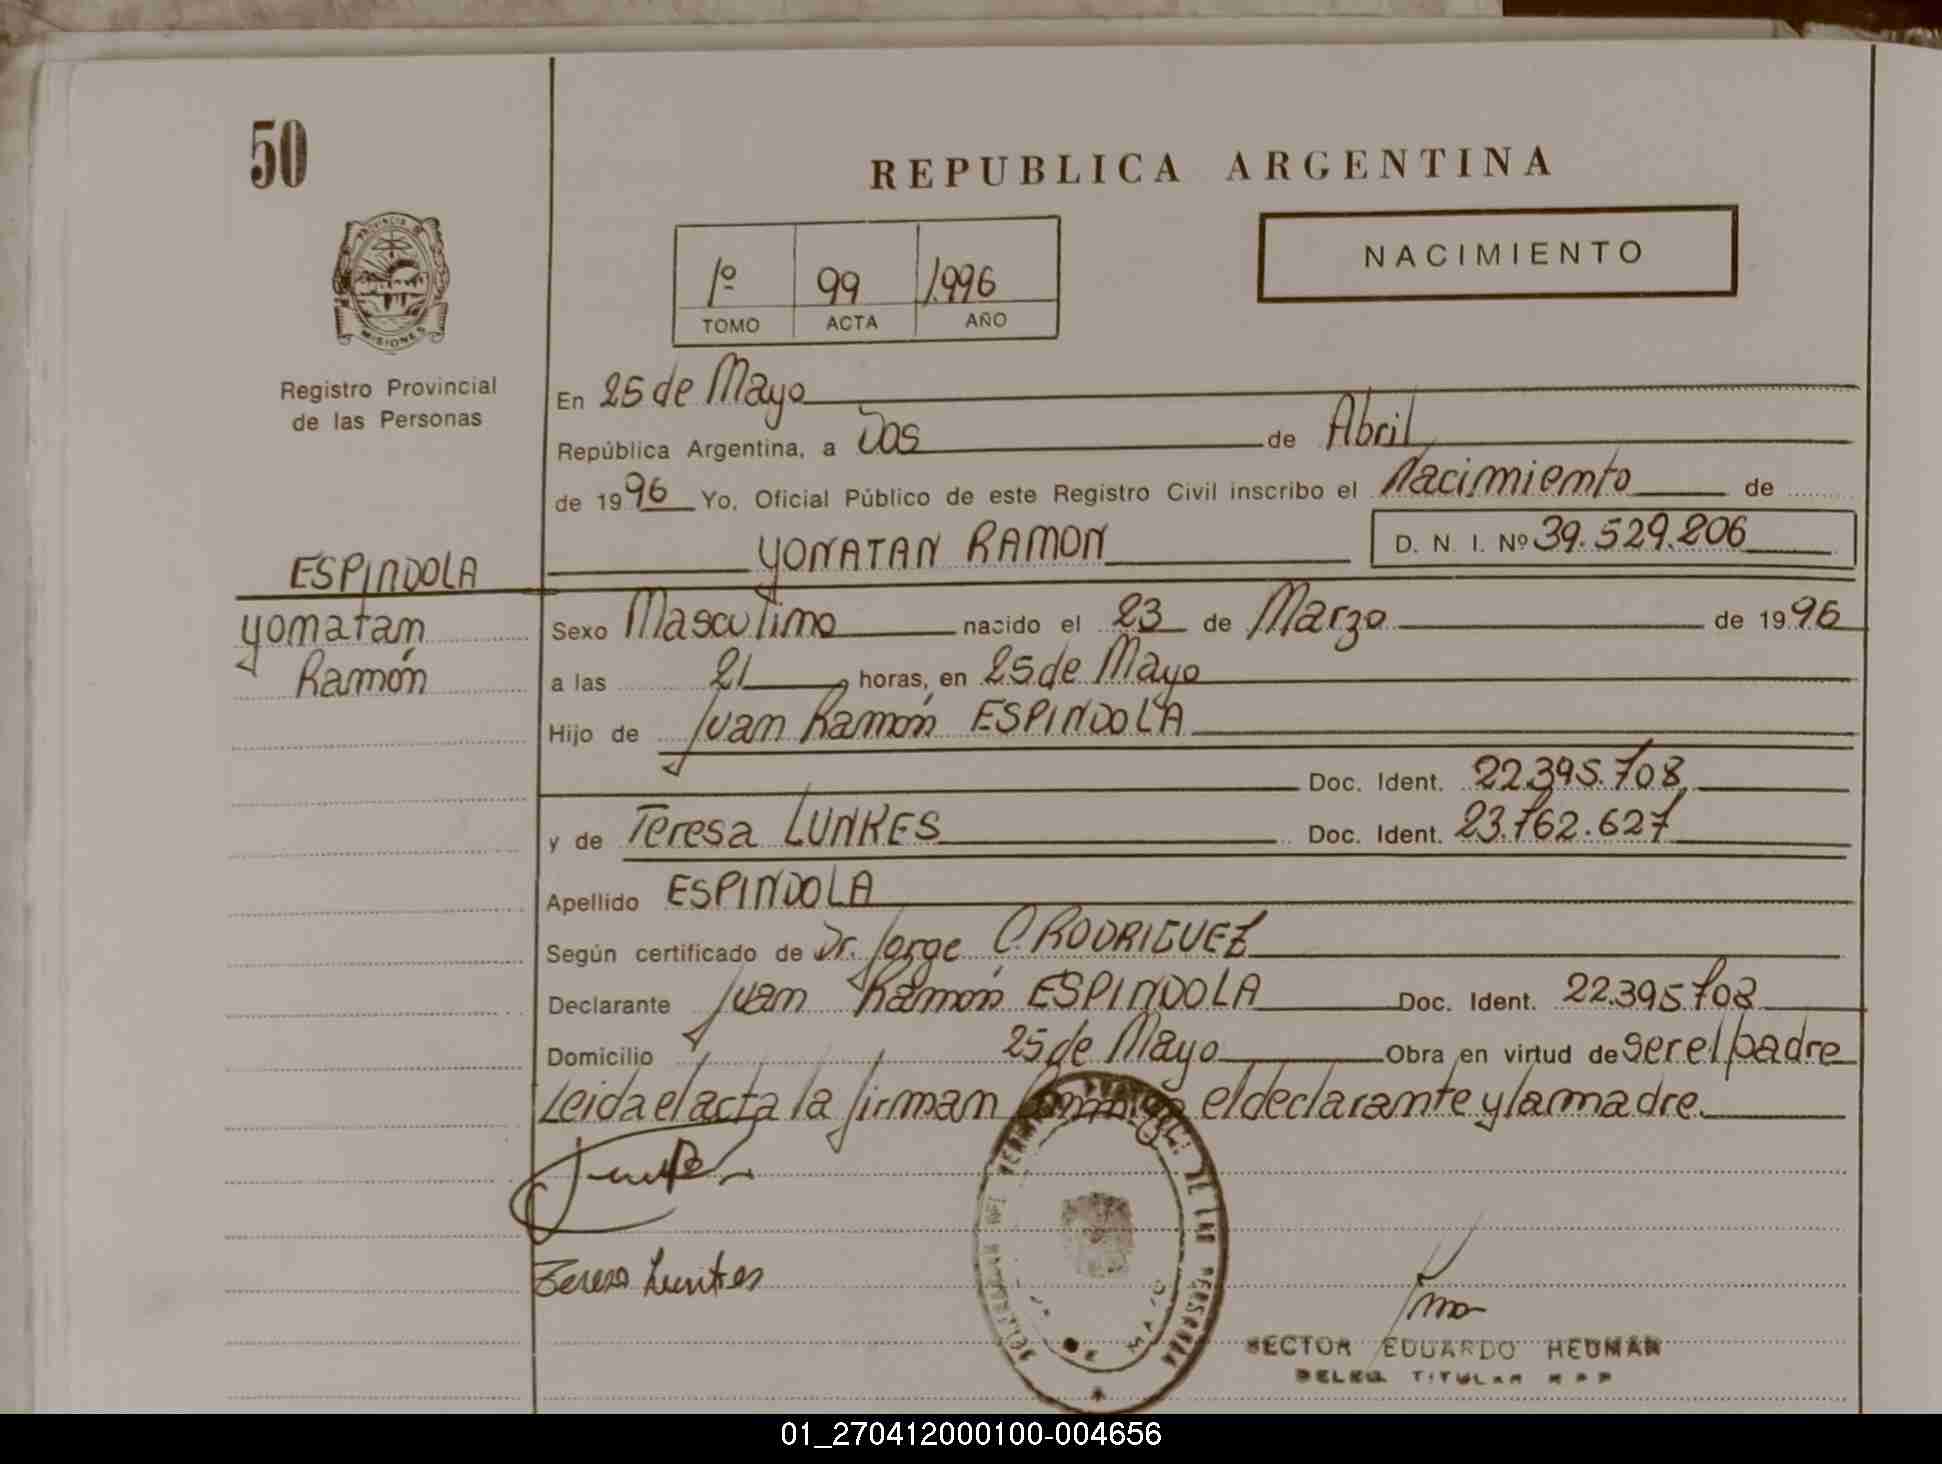 50
REPUBLICA ARGENTINA
PROVINCIA DE
MISIONES
Registro Provincial
de las Personas
1º 99 1.996
TOMO ACTA AÑO
NACIMIENTO
En 25 de Mayo
República Argentina, a Dos de Abril
de 1996 Yo, Oficial Público de este Registro Civil inscribo el Nacimiento de
YONATAN RAMON D. N. I. Nº 39.529.206
ESPINDOLA
Yonatan
Ramón
Sexo Masculino nacido el 23 de Marzo de 1996
a las 21 horas, en 25 de Mayo
Hijo de Juan Ramón ESPINDOLA
Doc. Ident. 22.395.708
y de Teresa LUNKES Doc. Ident. 23.762.627
Apellido ESPINDOLA
Según certificado de Dr. Jorge O. RODRIGUEZ
Declarante Juan Ramón ESPINDOLA Doc. Ident. 22.395.708
Domicilio 25 de Mayo Obra en virtud de ser el padre
Leida el acta la firman conmigo el declarante y la madre.
Teresa Lunkes
HECTOR EDUARDO HEDMAN
DELEG. TITULAR RPP
01_270412000100-004656